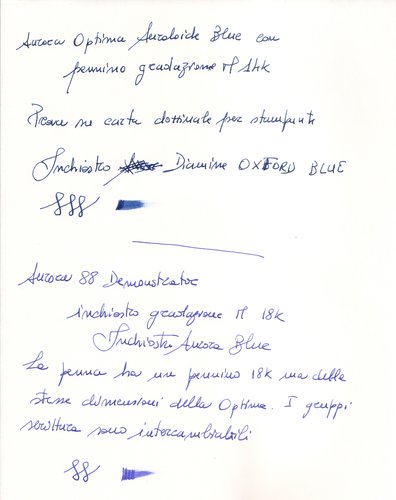 Aurora Optima Auroloide Blue con
pennino gradazione M 14k
Prova su carta dozzinale per stampante
Inchiostro Diamine OXFORD BLUE
Aurora 88 Demonstrator
inchiostro gradazione M 18k
Inchiostro Aurora Blue
La penna ha un pennino 18k ma delle
stesse dimensioni della Optima. I gruppi
scrittura sono intercambiabili